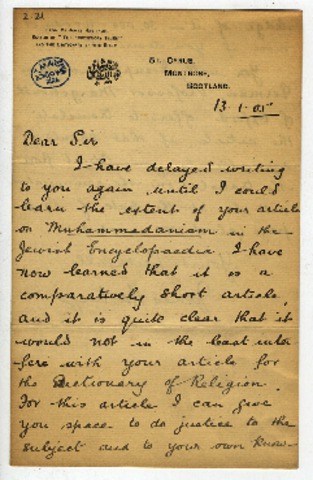 2-21
St. Cyrus,
Montrose,
Scotland.
13·1·05
Dear Sir
I have delayed writing
to you again until I could
learn the extent of your article
on Muhammedanism in the
Jewish Encyclopaedia. I have
now learned that it is a
comparatively short article,
and it is quite clear that it
would not in the least inter-
fere with your article for
the Dictionary of Religion.
For this article I can give
you space to do justice to the
subject and to your own know-